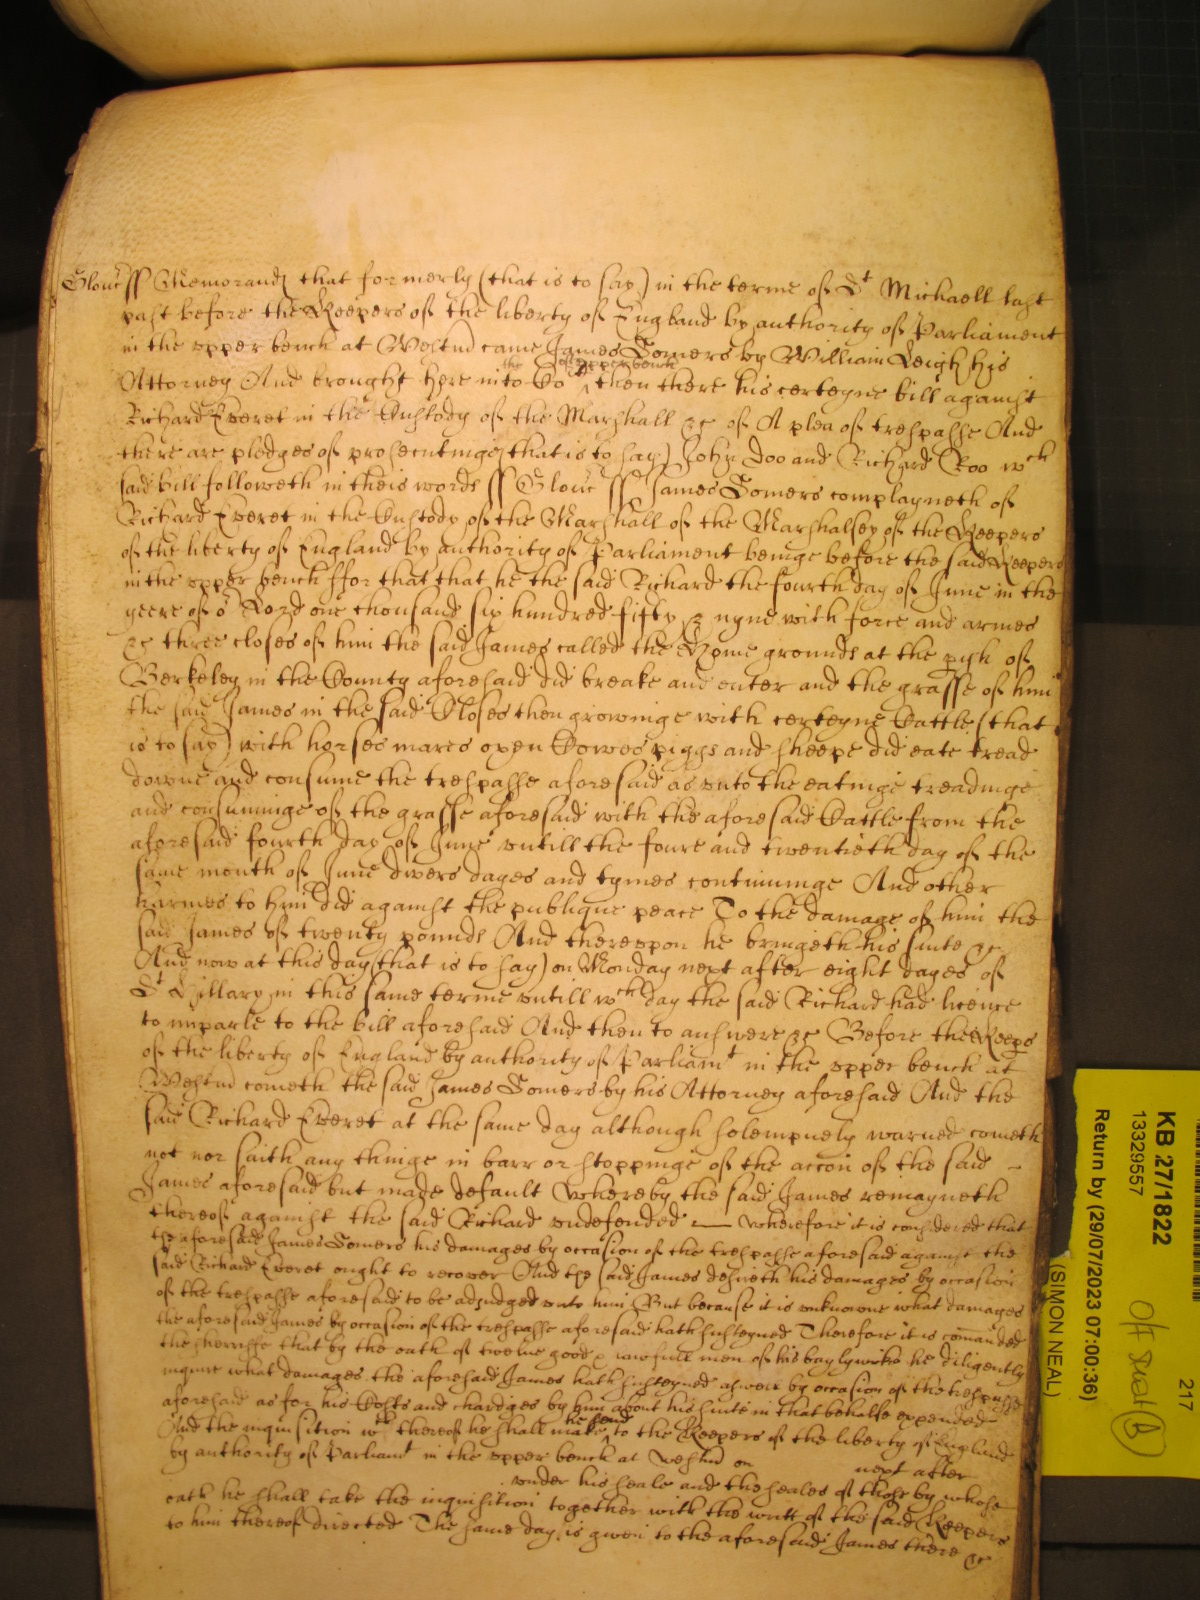 Gloucr ss Memorand that formerly (that is to say) in the terme of St Michaell last
past before the Keepers of the liberty of England by authority of Parliament
in the vpper bench at Westmr came James Somers by William Leigh his
the vpper bench
Attorney And brought here into Co then there his certeyne bill against
Richard Everet in the Custody of the Marshall &c of A plea of trespasse And
there are pledges of prosecutinge (that is to say) John Doo and Richard Roo wch
said bill followeth in theis words ss Gloucr ss James Somers complayneth of
Richard Everet in the Custody of the Marshall of the Marshalsey of the Keepers
of the liberty of England by authority of Parliament beinge before the said Keepers
in the vpper bench ffor that that he the said Richard the fourth day of June in the
yeere of or Lord one thousand six hundred fifty & nyne with force and armes
&c three closes of him the said James called the grounds at the pish of
Berkeley in the County aforesaid did breake and enter and the grasse of him
the said James in the said Closes then growinge with certeyne Cattle (that
is to say) with horses mares oxen Cowes piggs and sheepe did eate tread
downe and consume the trespasse aforesaid as vnto the eatinge treadinge
and consuminge of the grasse aforesaid with the aforesaid Cattle from the
aforesaid fourth day of June vntill the foure and twentieth day of the
same month of June divers dayes and tymes continuinge And other
harmes to him did against the publique peace To the damage of him the
said James of twenty pounds And therevpon he bringeth his suite &c
And now at this day (that is to say) on Monday next after eight dayes of
St Hillary in this same terme vntill wch day the said Richard had licence
to imparle to the bill aforesaid And then to answere &c Before the Keeps
of the liberty of England by authority of Parliamt in the vpper bench at
Westmr cometh the said James Somers by his Attorney aforesaid And the
said Richard Everet at the same day although solempnely warned cometh
not nor saith any thinge in barr or stoppinge of the accon of the said
James aforesaid but made default Whereby the said James remayneth
thereof against the said Richard vndefended — Wherefore it is considered that
the aforesaid James Somers his damages by occasion of the trespasse aforesaid against the
said Richard Everet ought to recover And the said James desireth his damages by occasion
of the trespasse aforesaid to be adjudged vnto him But because it is vnknowne what damages
the aforesaid James by occasion of the trespasse aforesaid hath susteyned Therefore it is comanded
the sherriffe that by the oath of twelve good & lawfull men of his baylywicke he diligently
inquire what damages the aforesaid James hath susteyned aswell by occasion of the trespasse
aforesaid as for his Costs and chardges by him about his suite in that behalfe expended
he send
And the inquisition wch thereof he shall make to the Keepers of the liberty of England
by authority of Parliamt in the vpper bench at Westmr on next after
vnder his seale and the seales of those by whose
oath he shall take the inquisition together with the writt of the said Keepers
to him thereof directed The same day is given to the aforesaid James there &c
KB 27/1822
13329557
Return by (29/07/2023 07:00:36)
(SIMON NEAL)
217